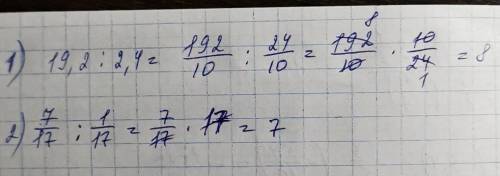 1) 19,2 : 2,4 = 192/10 : 24/10 = 192/10 · 10/24 = 8
8
1
2) 7/17 : 1/17 = 7/17 · 17 = 7